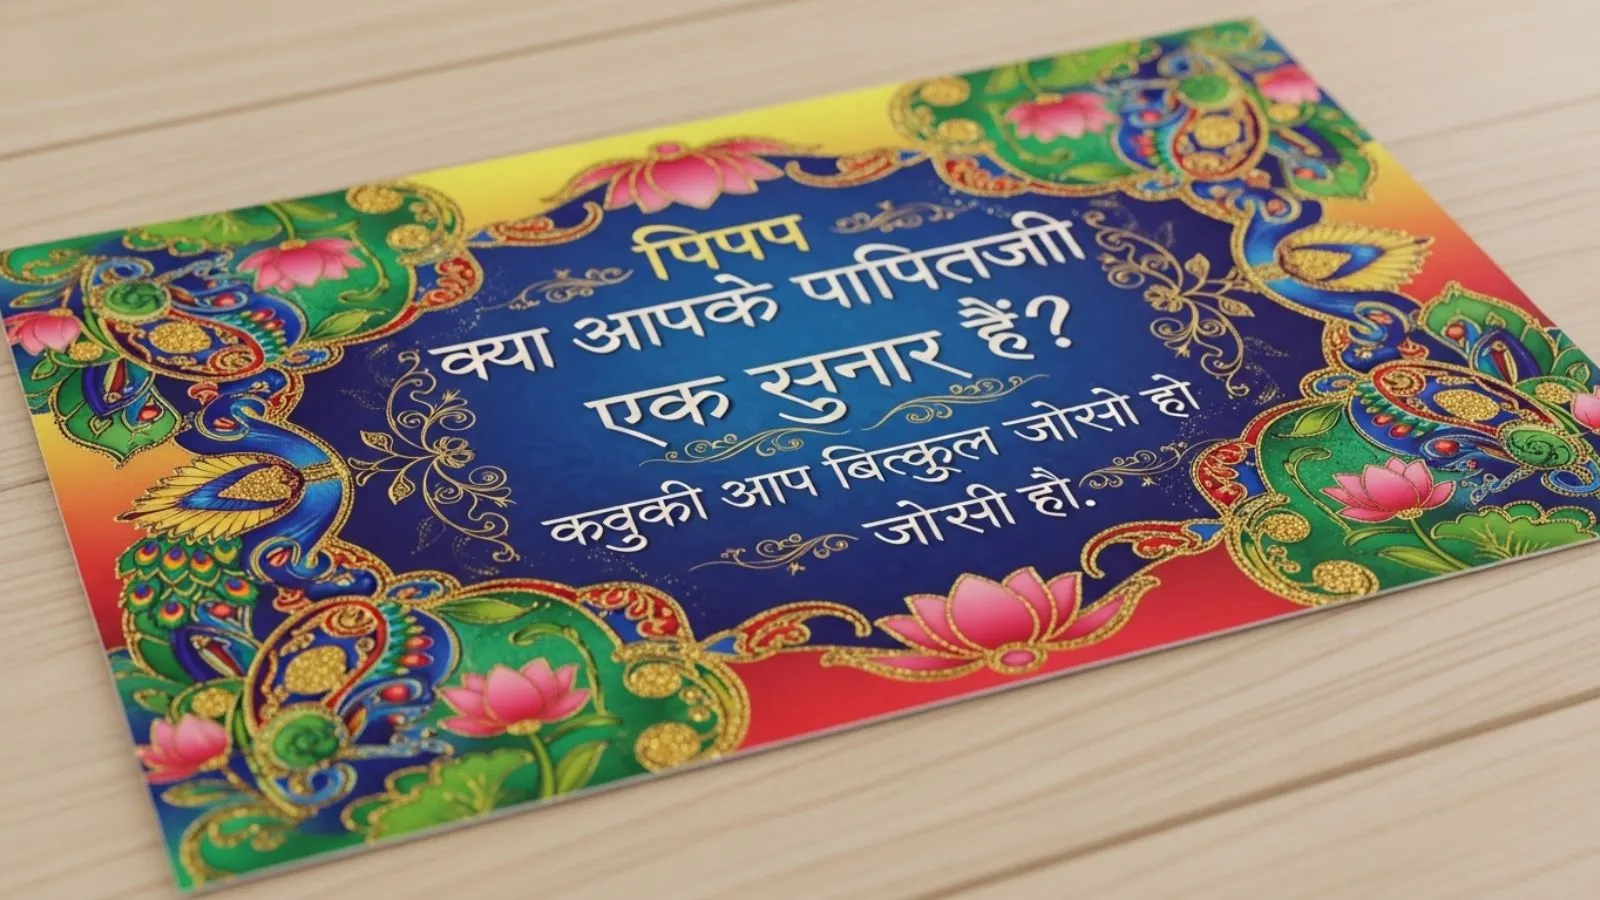 पिपप
क्या आपके पापितजीी
एक सुनार हैं?
कवुकी आप बित्कुल जोसो हो
जोसी हौ.